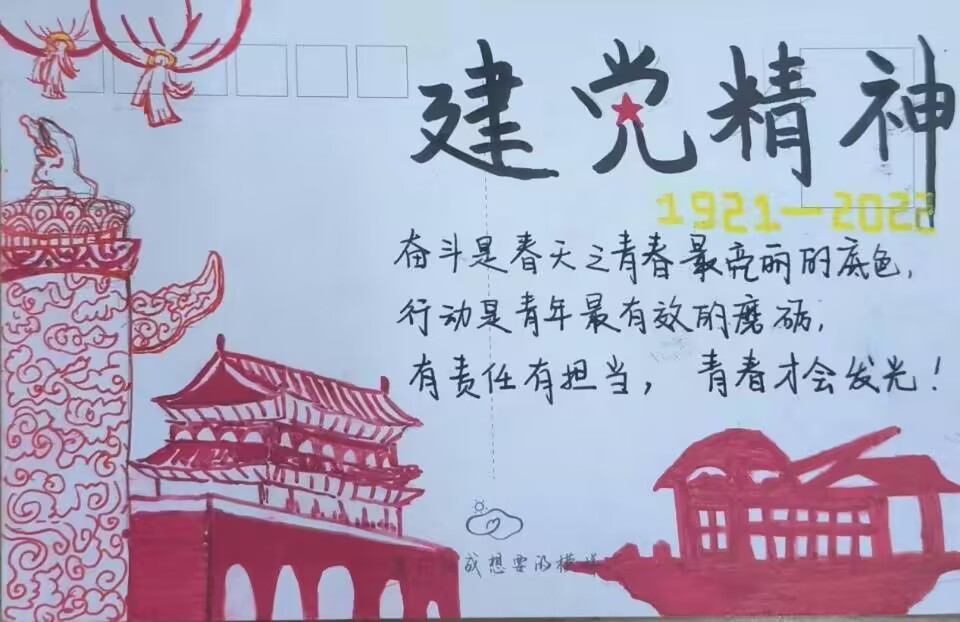 建党精神
1921—2022
奋斗是春天之青春最亮丽的底色,
行动是青年最有效的磨砺,
有责任有担当, 青春才会发光!
成想要的模样